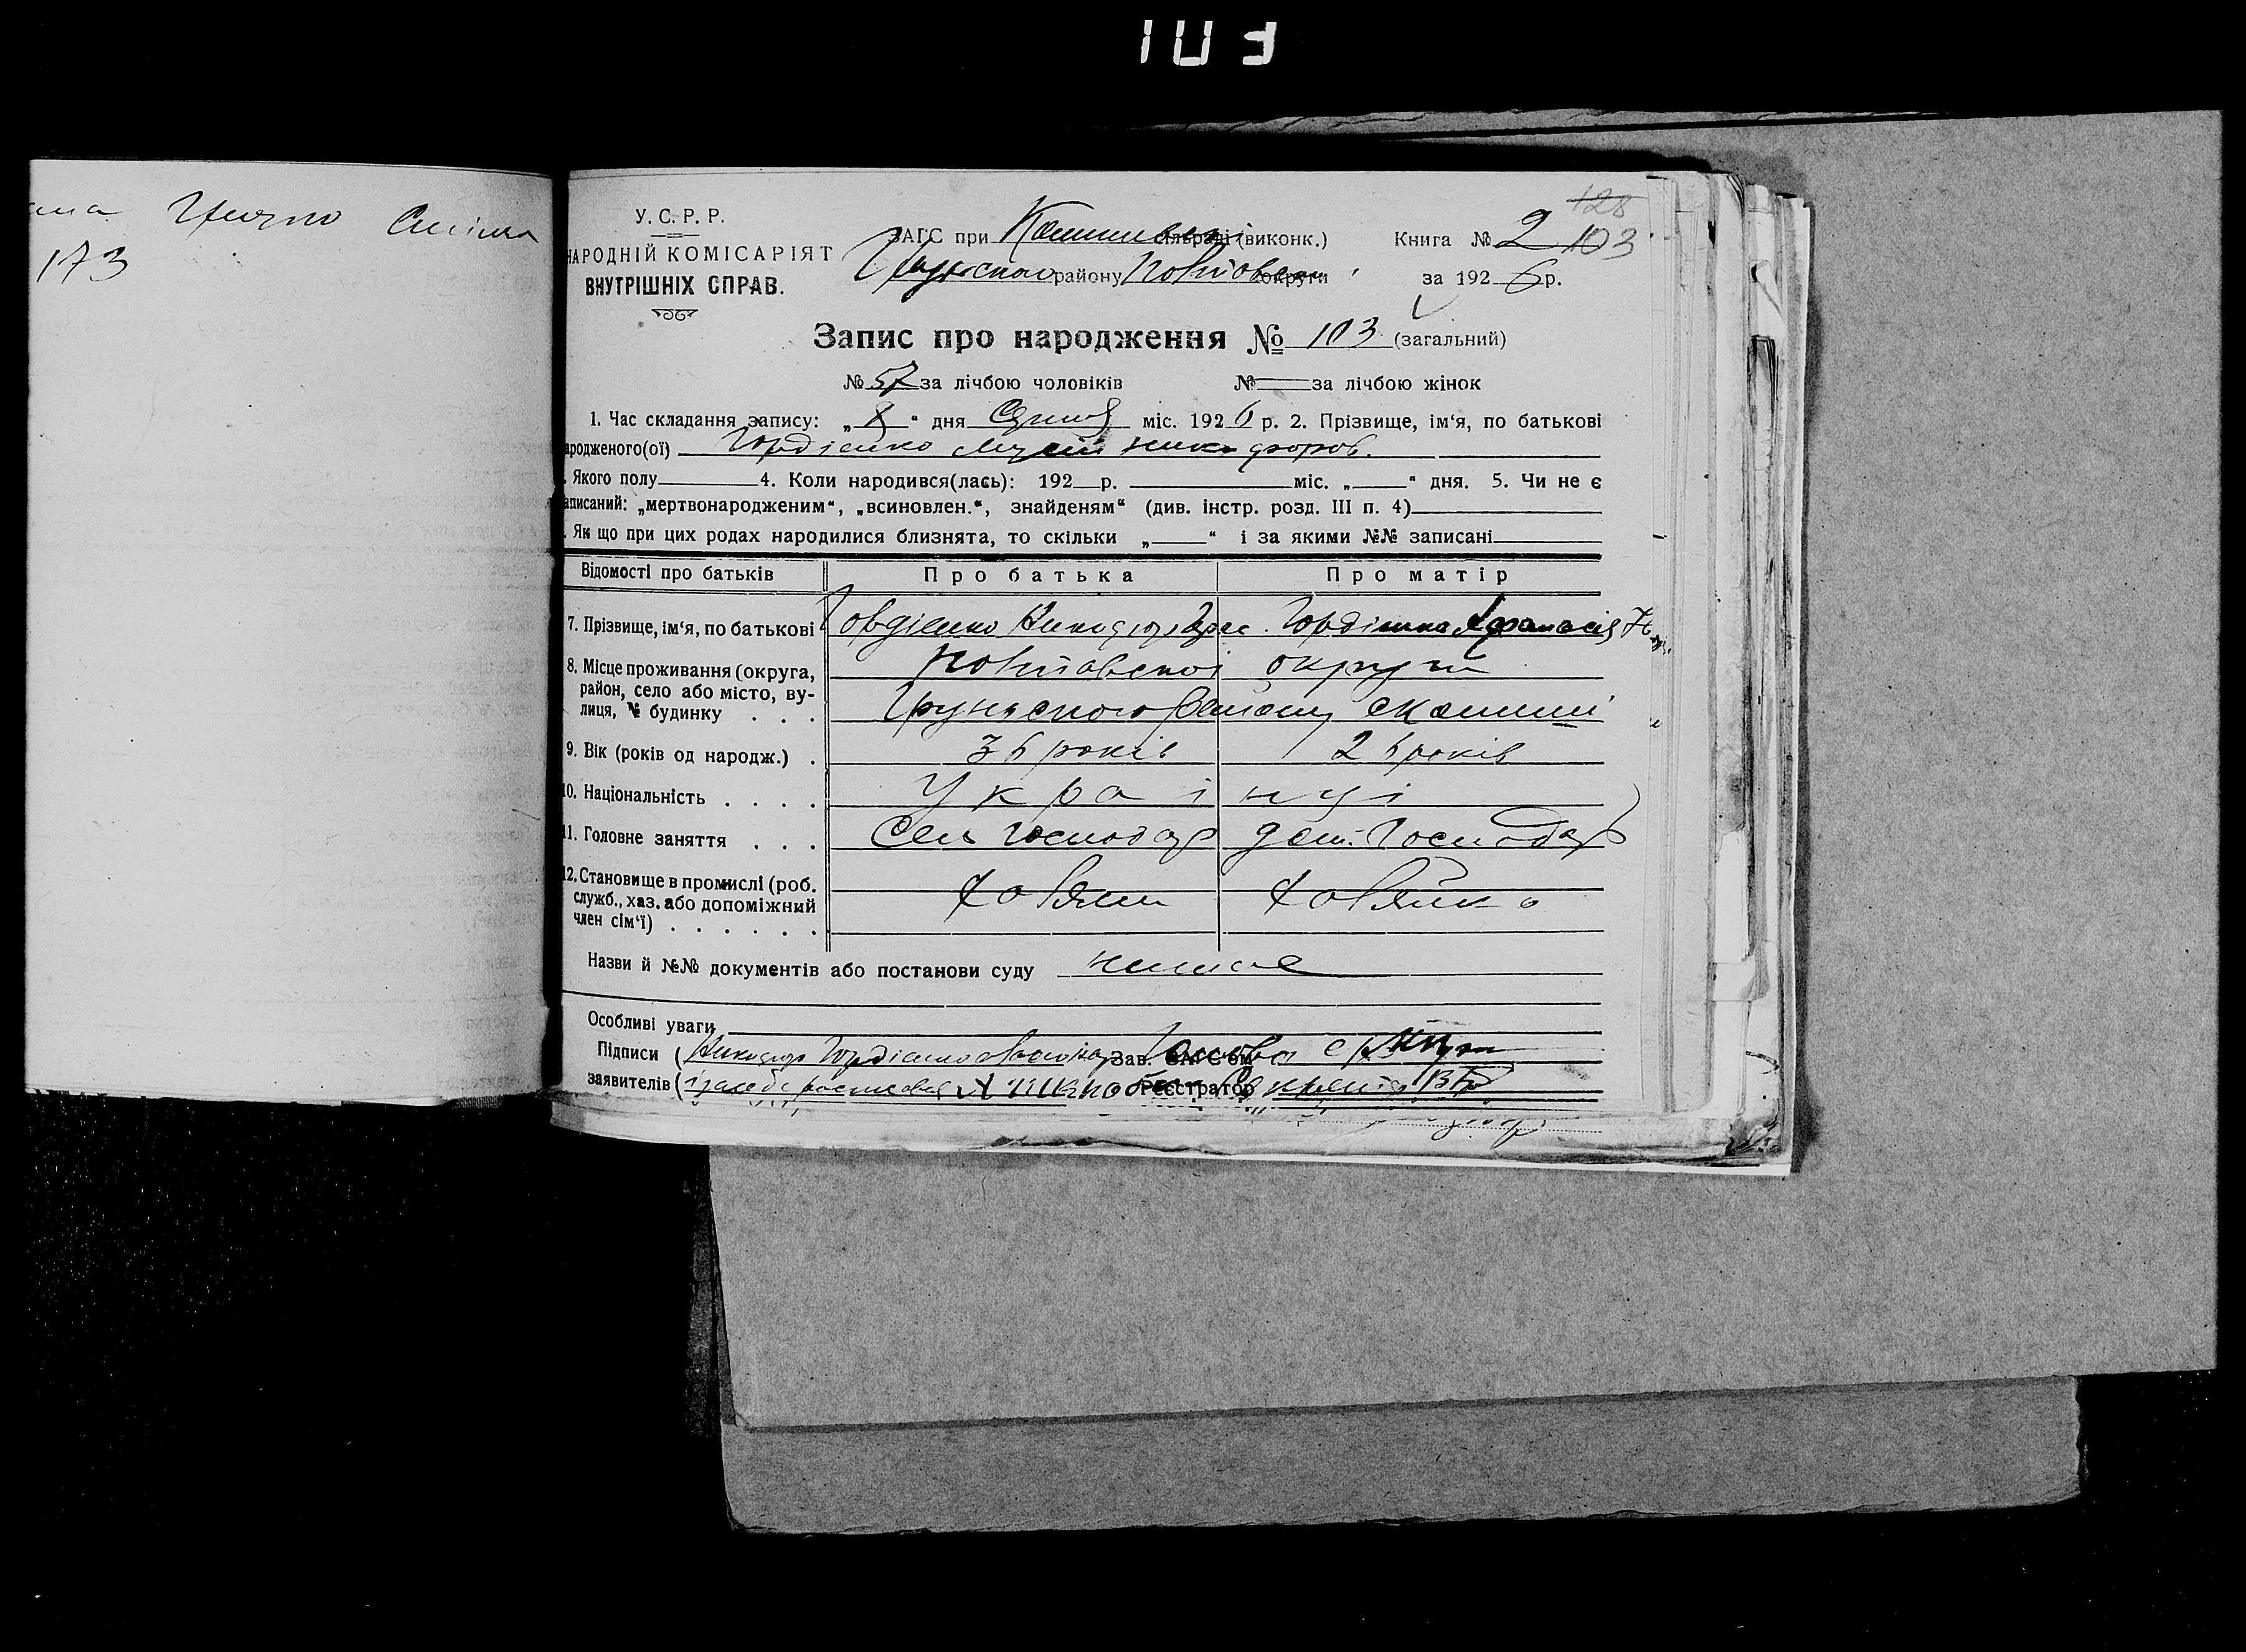 103
Сміла
173
У. С. Р. Р.
НАРОДНІЙ КОМІСАРІЯТ
ВНУТРІШНІХ СПРАВ.
128
ЗАГС при сільраді (виконк.) Книга № 2 103
району Полтавської округи за 1926 р.
Запис про народження № 103 (загальний)
№ 57 за лічбою чоловіків № за лічбою жінок
1. Час складання запису: „ 8 “ дня Січня міс. 1926 р. 2. Прізвище, ім‘я, по батькові
ародженого(ої) Гордієнко Мусій Никифоров.
. Якого полу 4. Коли народився(лась): 192 р. міс. „ “ дня. 5. Чи не є
аписаний: „мертвонародженим“, „всиновлен.“, знайденям“ (див. інстр. розд. III п. 4)
. Як що при цих родах народилися близнята, то скільки „ “ і за якими №№ записані
Відомості про батьків Про батька Про матір
7. Прізвище, ім‘я, по батькові Гордієнко Никифор Гордієнко Афанасія
8. Місце проживання (округа, Полтавської округи
район, село або місто, ву-
лиця, № будинку . . . Грунського району
9. Вік (років од народж.) . 36 років 26 років
10. Національність . . . . Українці
11. Головне заняття . . . Сель господар дом. Господар
12. Становище в промислі (роб.
служб., хаз. або допоміжний хозяин хозяйка
член сім‘ї) . . . . . .
Назви й №№ документів або постанови суду немає
Особливі уваги
Підписи ( Никифор Гордієнко Зав. ЗАГС‘ом Голова
заявителів ( Реєстратор